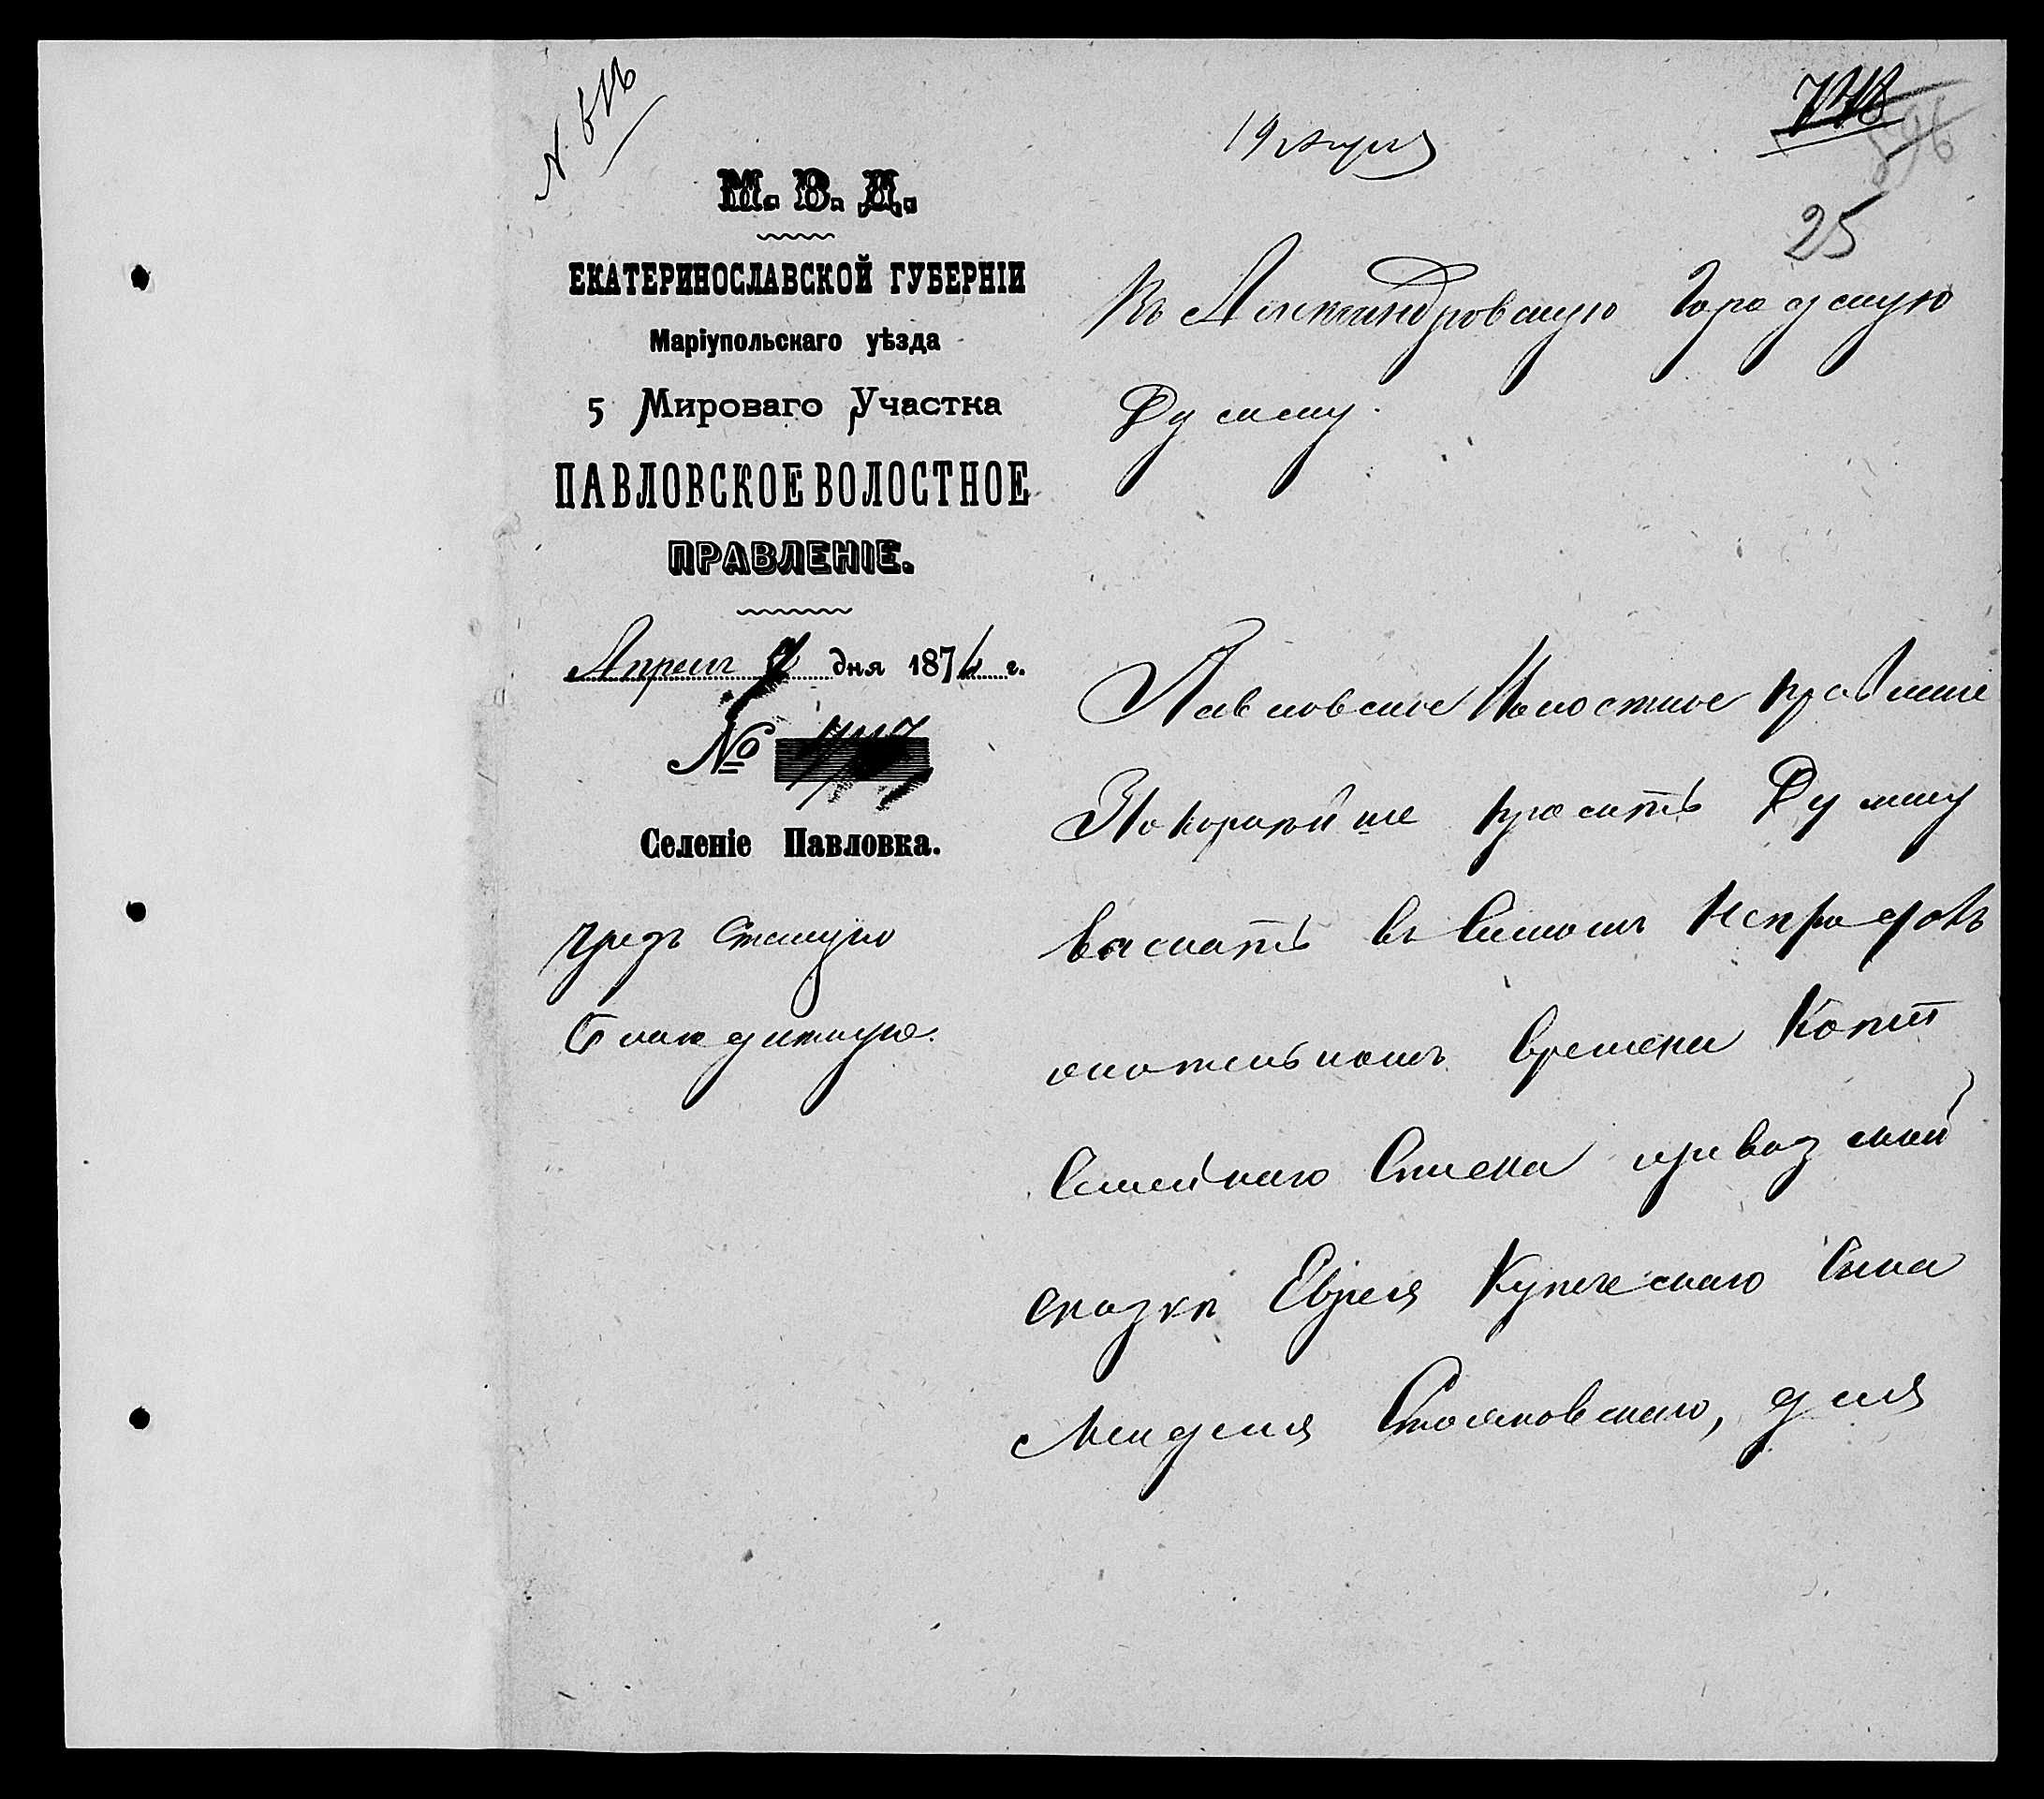 19 апреля
25
М. В. Д.
ЕКАТЕРИНОСЛАВСКОЙ ГУБЕРНІИ
Маріупольскаго уѣзда
5 Мироваго Участка
ПАВЛОВСКОЕ ВОЛОСТНОЕ
ПРАВЛЕНІЕ.
Апреля дня 187 г.
№
Селеніе Павловка.
чрезъ Станцую
Въ Александровскую Городскую
Думу.
Павловское Волостное правленіе
Покорнейше проситъ Думу
выслать въ самомъ непродол
жительномъ времени Копію
Семейнаго Списка ревизской
сказки Еврея Купеческаго Сына
Менделя Столяковскаго, для